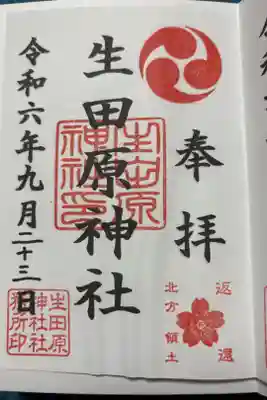 奉拝
生田原神社
生田原
神社印
令和六年九月二十三日
返還
北方領土
生田原
神社社
務所印